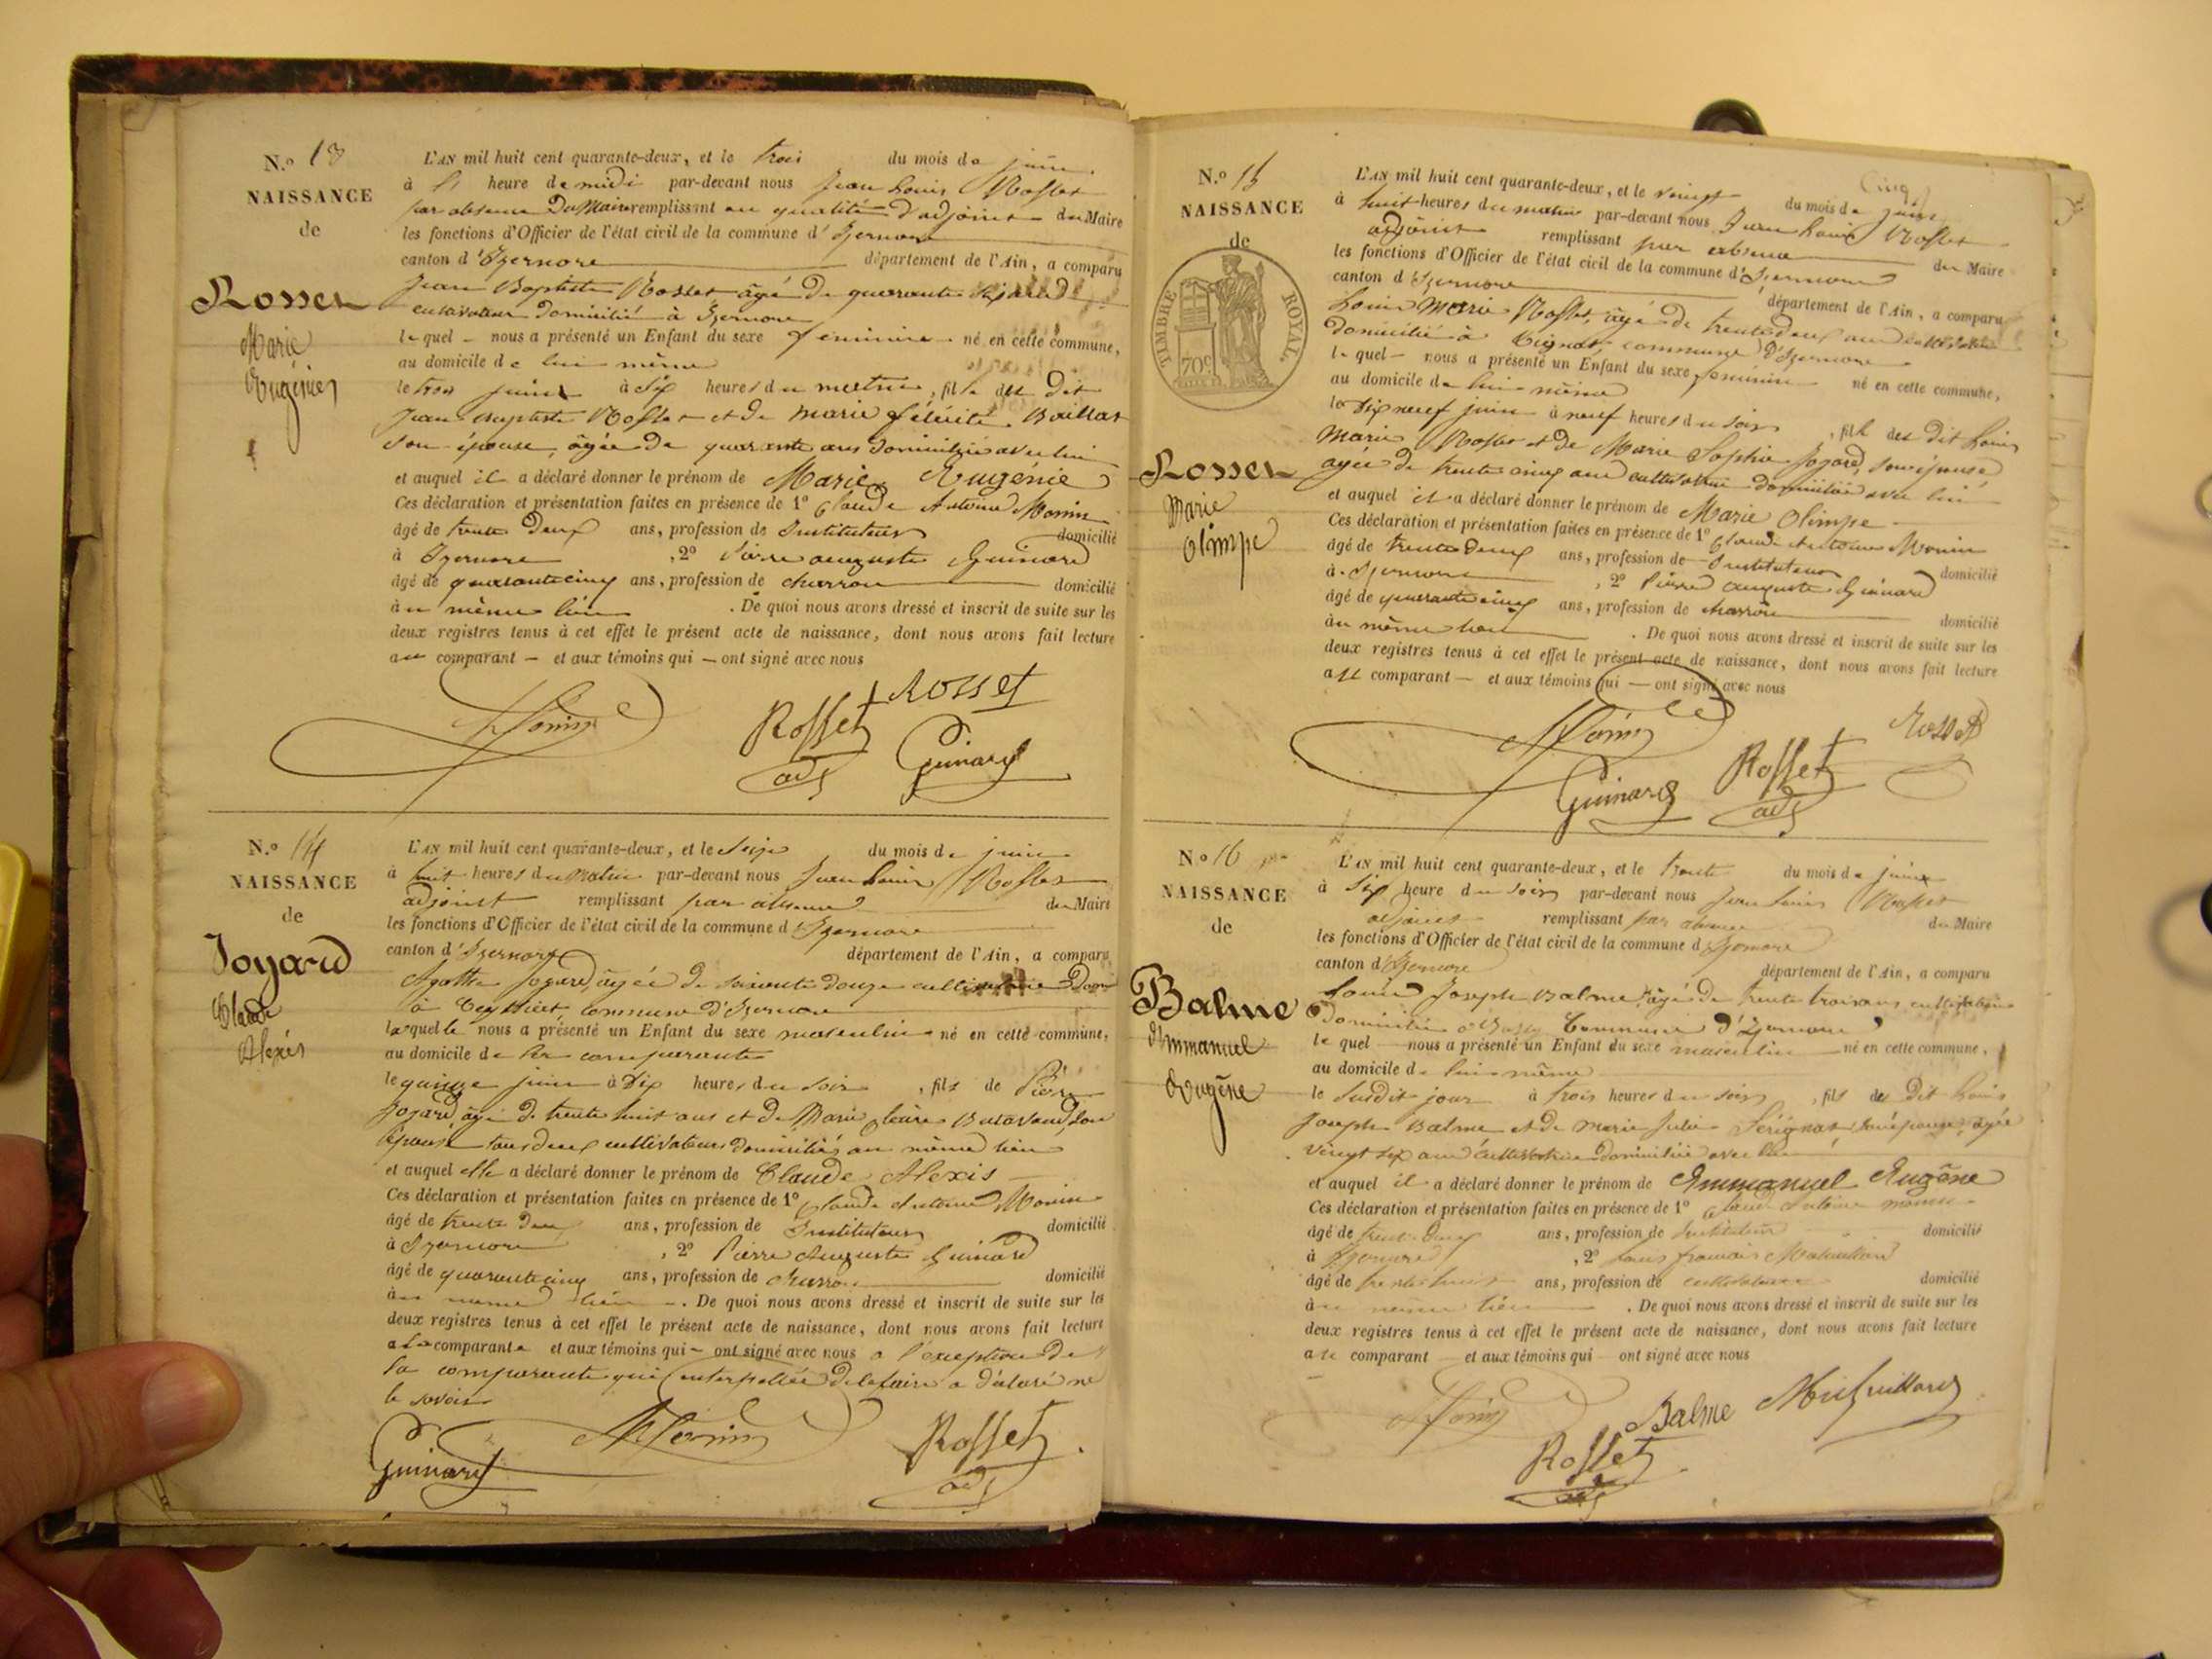 N.o 13
NAISSANCE
de
Rosset
Marie
Eugénie
L'AN mil huit cent quarante-deux, et le trois du mois de juin
à heure de midi par-devant nous Jean Louis Rosset
par absence du Maire remplissant en qualité d'adjoint du Maire
les fonctions d'Officier de l'état civil de la commune d'Izernore
canton d'Izernore département de l'Ain, a comparu
Jean Baptiste Rosset âgé de quarante
cultivateur domicilié à Izernore
lequel nous a présenté un Enfant du sexe féminin né en cette commune,
au domicile de lui même
le trois juin à six heures du matin, fille du dit
Jean Baptiste Rosset et de Marie félicité
son épouse, âgée de quarante ans domiciliée avec lui
et auquel il a déclaré donner le prénom de Marie Eugénie
Ces déclaration et présentation faites en présence de 1o Claude Antoine Monin
âgé de trente deux ans, profession de Instituteur domicilié
à Izernore, 2o Pierre auguste Guinard
âgé de quarante cinq ans, profession de charron domicilié
au même lieu. De quoi nous avons dressé et inscrit de suite sur les
deux registres tenus à cet effet le présent acte de naissance, dont nous avons fait lecture
au comparant et aux témoins qui ont signé avec nous
Monin Rosset adj Rosset Guinard
N.o 14
NAISSANCE
de
Joyard
Claude
Alexis
L'AN mil huit cent quarante-deux, et le seize du mois de juin
à huit heures du matin par-devant nous Jean Louis Rosset
adjoint remplissant par absence du Maire
les fonctions d'Officier de l'état civil de la commune d'Izernore
canton d'Izernore département de l'Ain, a comparu
Agathe Joyard, âgée de soixante douze cultivatrice
à commune d'Izernore
laquelle nous a présenté un Enfant du sexe masculin né en cette commune,
au domicile de la comparante
le quinze juin à dix heures du soir, fils de Pierre
Joyard, âgé de trente huit ans et de Marie son
épouse tous deux cultivateurs domiciliés au même lieu
et auquel elle a déclaré donner le prénom de Claude Alexis
Ces déclaration et présentation faites en présence de 1o Claude Antoine Monin
âgé de trente deux ans, profession de Instituteur domicilié
à Izernore, 2o Pierre Auguste Guinard
âgé de quarante cinq ans, profession de charron domicilié
au même lieu. De quoi nous avons dressé et inscrit de suite sur les
deux registres tenus à cet effet le présent acte de naissance, dont nous avons fait lecture
a la comparante et aux témoins qui ont signé avec nous a l'exception de
la comparante qui interpellée de le faire a déclaré ne
le savoir
Guinard Monin Rosset adj
N.o 15
NAISSANCE
de
TIMBRE ROYAL
70c
Rosset
Marie
Olimpe
L'AN mil huit cent quarante-deux, et le vingt du mois de juin
à huit heures du matin par-devant nous Jean Louis Rosset
adjoint remplissant par absence du Maire
les fonctions d'Officier de l'état civil de la commune d'Izernore
canton d'Izernore département de l'Ain, a comparu
Louis Marie Rosset, âgé de trente deux ans cultivateur
domicilié à commune d'Izernore
lequel nous a présenté un Enfant du sexe féminin né en cette commune,
au domicile de lui même
le dix neuf juin à neuf heures du soir, fille du dit Louis
Marie Rosset et de Marie Sophie Joyard, son épouse
agée de trente cinq ans cultivatrice domiciliée avec lui
et auquel il a déclaré donner le prénom de Marie Olimpe
Ces déclaration et présentation faites en présence de 1o Claude Antoine Monin
âgé de trente deux ans, profession de Instituteur domicilié
à Izernore, 2o Pierre auguste Guinard
âgé de quarante cinq ans, profession de charron domicilié
au même lieu. De quoi nous avons dressé et inscrit de suite sur les
deux registres tenus à cet effet le présent acte de naissance, dont nous avons fait lecture
au comparant et aux témoins qui ont signé avec nous
Monin Guinard Rosset adj Rosset
N.o 16
NAISSANCE
de
Balme
Emmanuel
Eugène
L'AN mil huit cent quarante-deux, et le trente du mois de juin
à six heure du soir par-devant nous Jean Louis Rosset
adjoint remplissant par absence du Maire
les fonctions d'Officier de l'état civil de la commune d'Izernore
canton d'Izernore département de l'Ain, a comparu
Louis Joseph Balme âgé de trente trois ans cultivateur
domicilié à Commune d'Izernore
lequel nous a présenté un Enfant du sexe masculin né en cette commune,
au domicile de lui même
le susdit jour à trois heures du soir, fils du dit Louis
Joseph Balme et de Marie Julie Sérignat son épouse, agée
vingt six ans cultivatrice domiciliée avec lui
et auquel il a déclaré donner le prénom de Emmanuel Eugène
Ces déclaration et présentation faites en présence de 1o Claude Antoine Monin
âgé de trente deux ans, profession de Instituteur domicilié
à Izernore, 2o françois
âgé de trente huit ans, profession de cultivateur domicilié
au même lieu. De quoi nous avons dressé et inscrit de suite sur les
deux registres tenus à cet effet le présent acte de naissance, dont nous avons fait lecture
au comparant et aux témoins qui ont signé avec nous
Monin Rosset Balme